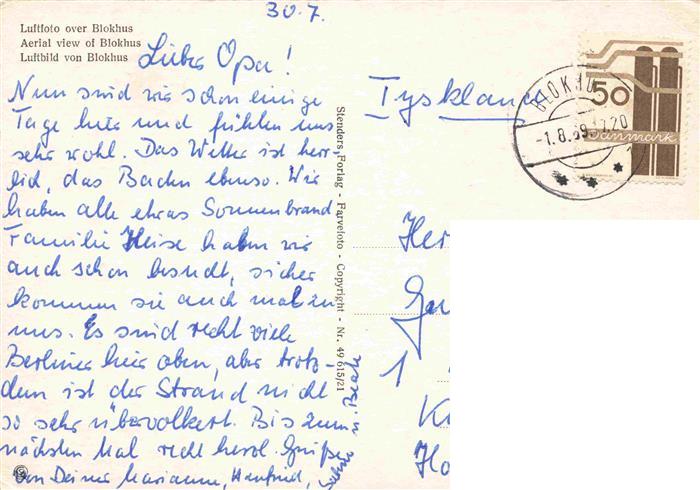 30.7.
Luftfoto over Blokhus
Aerial view of Blokhus
Luftbild von Blokhus
Lieber Opa!
Nun sind wir schon einige
Tage hier und fühlen uns
sehr wohl. Das Wetter ist herr-
lich, das Baden ebenso. Wir
haben alle etwas Sonnenbrand
Familie Heise haben wir
auch schon besucht, sicher
kommen sie auch mal zu
uns. Es sind recht viele
Berliner hier oben, aber trotz-
dem ist der Strand nicht
so sehr übervölkert. Bis zum
nächsten Mal recht herzl. Grüße
von Deiner Marianne, Manfred,
u. Beate
Stenders Forlag - Farvefoto - Copyright - Nr. 49 615/21
Tyskland
BLOKHUS
-1.8.69 17.20
50
Danmark
Her
1
K
Ho